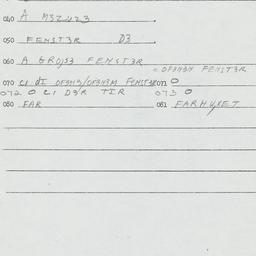 040 A M3ZUZ3
050 FENST3R D3
060 A GROJS3 FENST3R
= OF3N3N FENST3R
070 CI dI OF3N3/OF3N3M FENST3R on O
072 O CI D3R TIR 073 O
080 FAR 081 FARHUXET